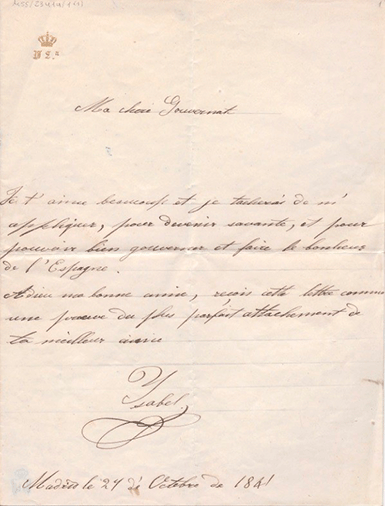 Ma chere Gouvernat
Je t'aime beaucoup et je tacherai de m'
appliquer, pour devenir savante, et pour
pouvoir bien gouverner et faire le bonheur
de l'Espagne.
Adieu ma bonne amie, reçois cette lettre comme
une preuve du plus parfait attachement de
ta meilleur amie
Ysabel
Madrid le 24 de Octobre de 1841